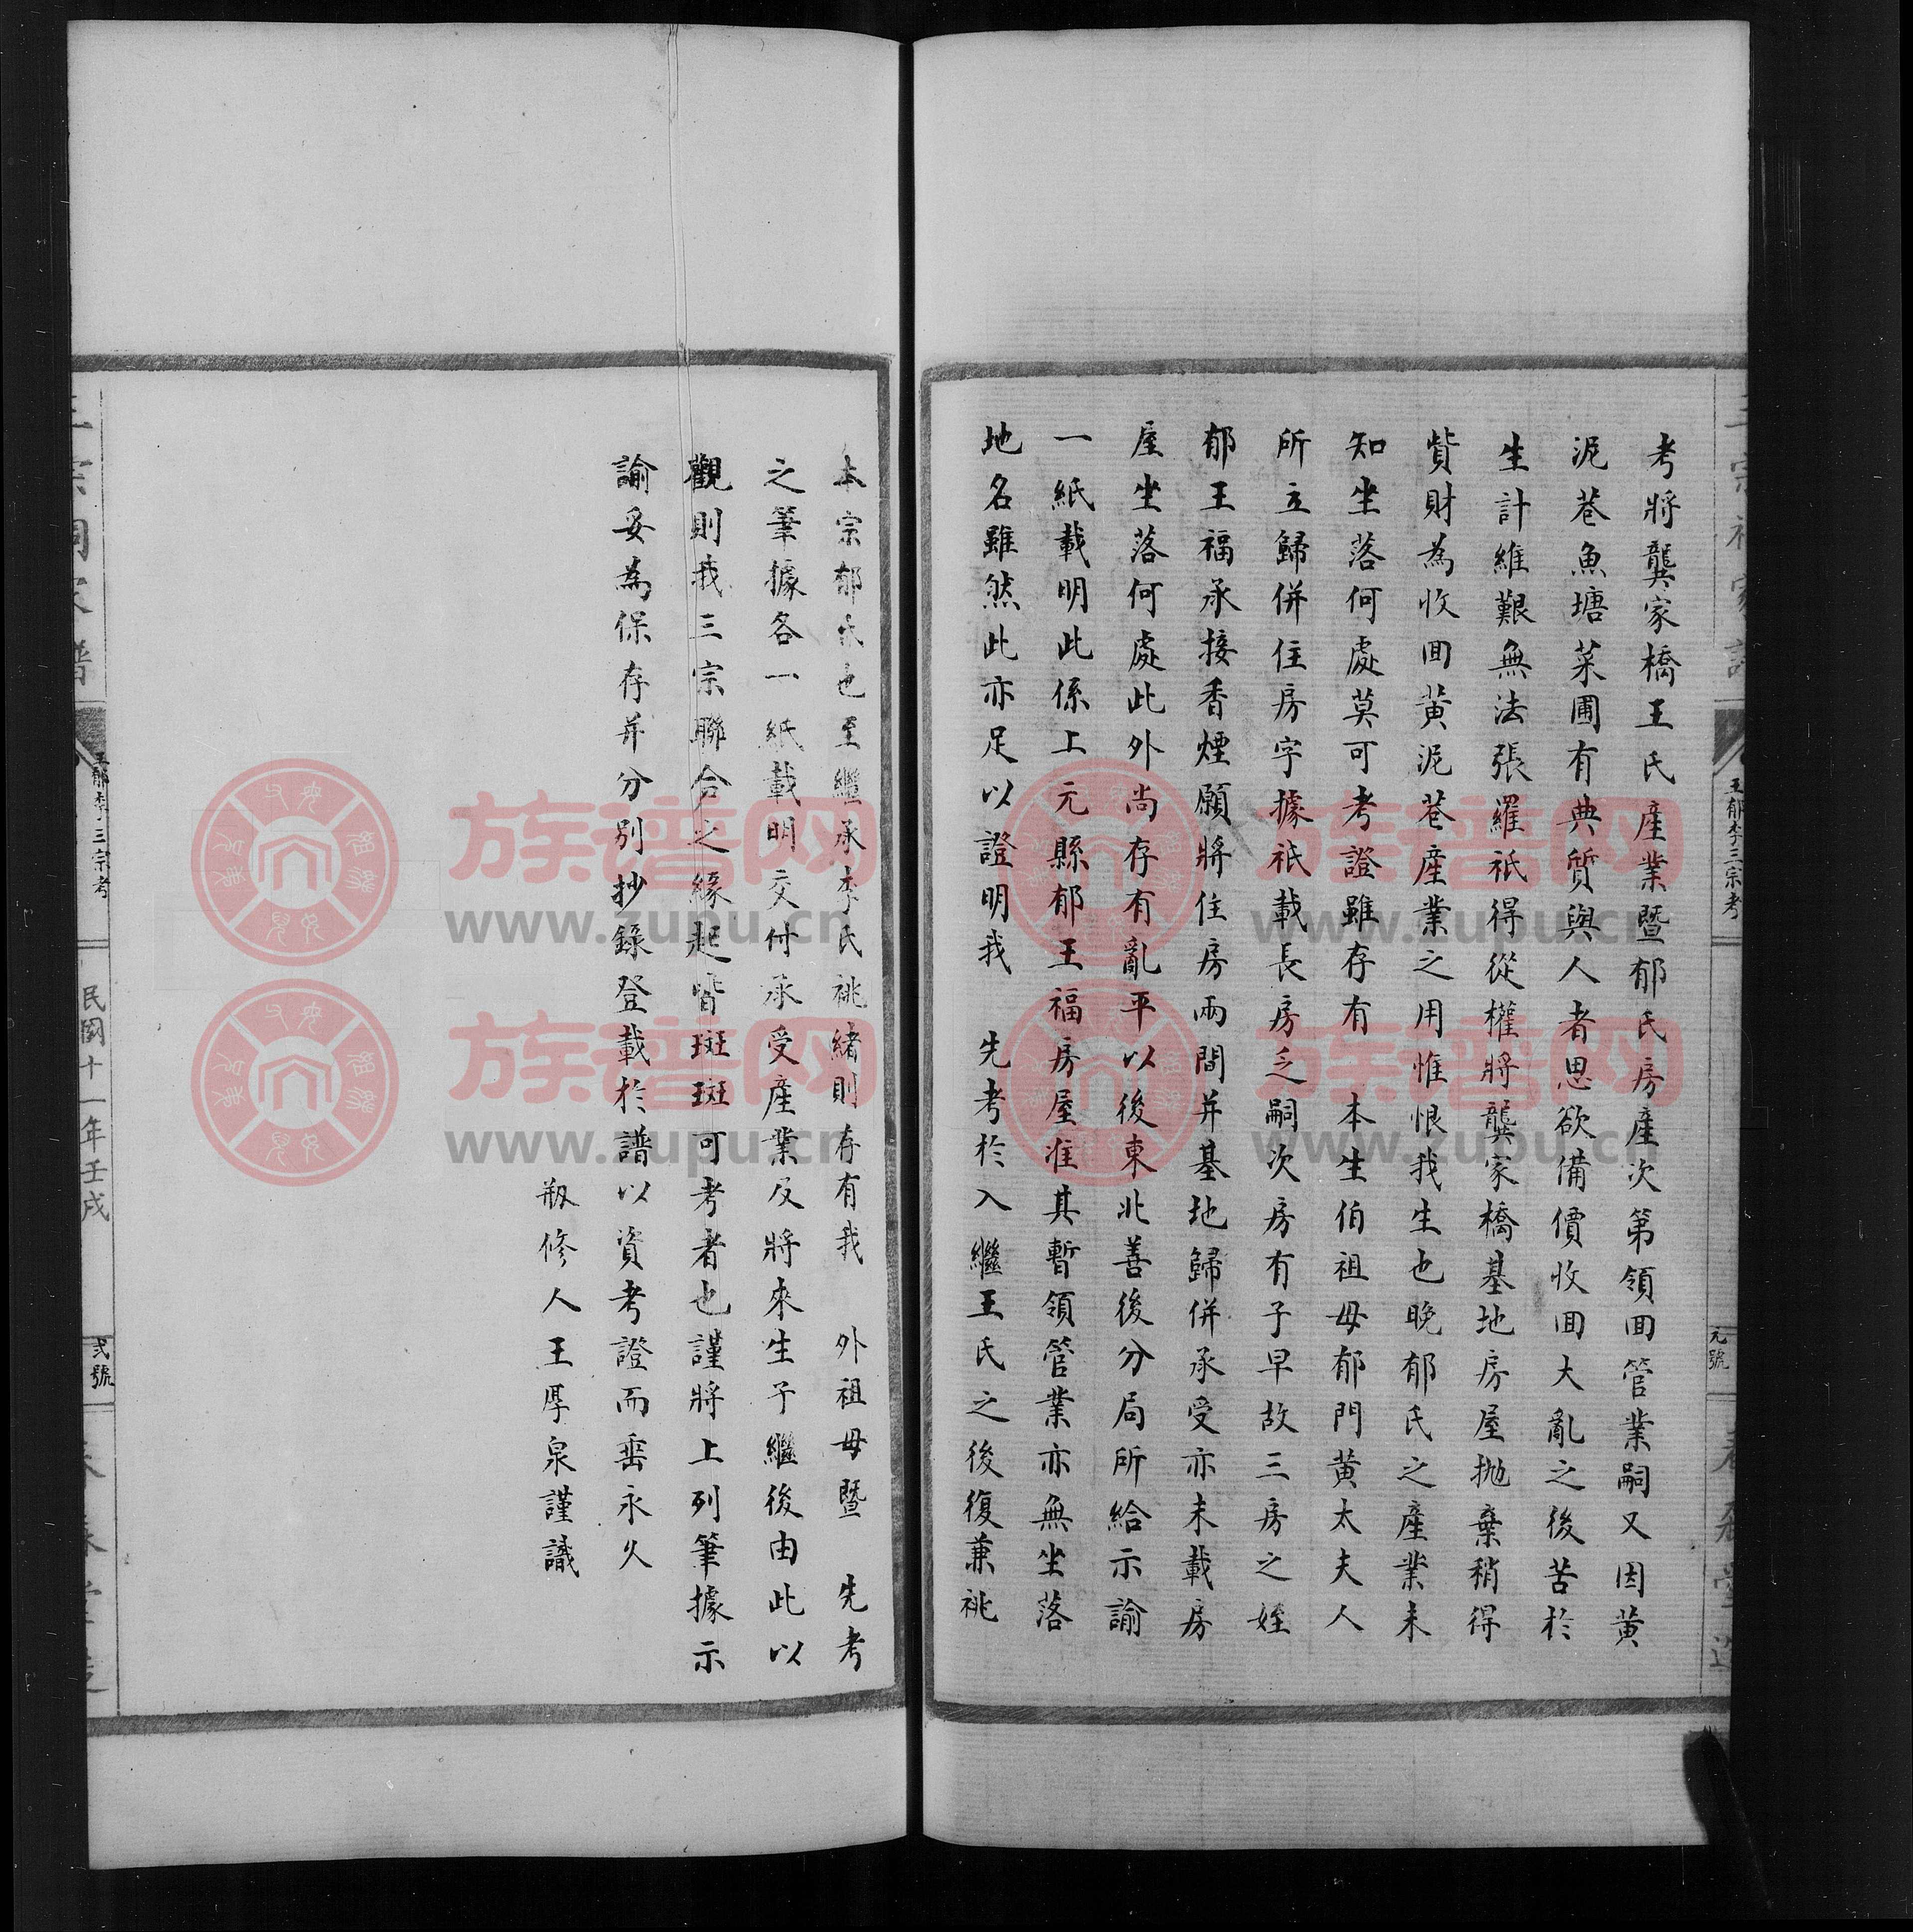 考將龔家橋王氏產業暨郁氏房產次第領回管業嗣又因黃
泥巷魚塘菜圃有典質與人者思欲備價收回大亂之後苦於
生計維艱無法張羅祇得從權將龔家橋基地房屋拋棄稍得
貲財為收回黃泥巷產業之用惟恨我生也晚郁氏之產業未
知坐落何處莫可考證雖存有　本生伯祖母郁門黃太夫人
所立歸併住房字據祇載長房乏嗣次房有子早故三房之姪
郁王福承接香煙願將住房兩間并基地歸併承受亦未載房
屋坐落何處此外尚存有亂平以後東北善後分局所給示諭
一紙載明此係上元縣郁王福房屋准其暫領管業亦無坐落
地名雖然此亦足以證明我　先考於入繼王氏之後復兼祧
王郁李三宗考
元號
本宗郁氏也至繼承李氏祧緒則存有我　外祖母暨　先考
之筆據各一紙載明交付承受產業及將來生子繼後由此以
觀則我三宗聯合之緣起皆斑斑可考者也謹將上列筆據示
諭妥為保存并分別抄錄登載於譜以資考證而垂永久
瓶修人王厚泉謹識
王郁李三宗考
民國十一年壬戌
弍號
族谱网
www.zupu.cn
族谱网
www.zupu.cn
族谱网
www.zupu.cn
族谱网
www.zupu.cn